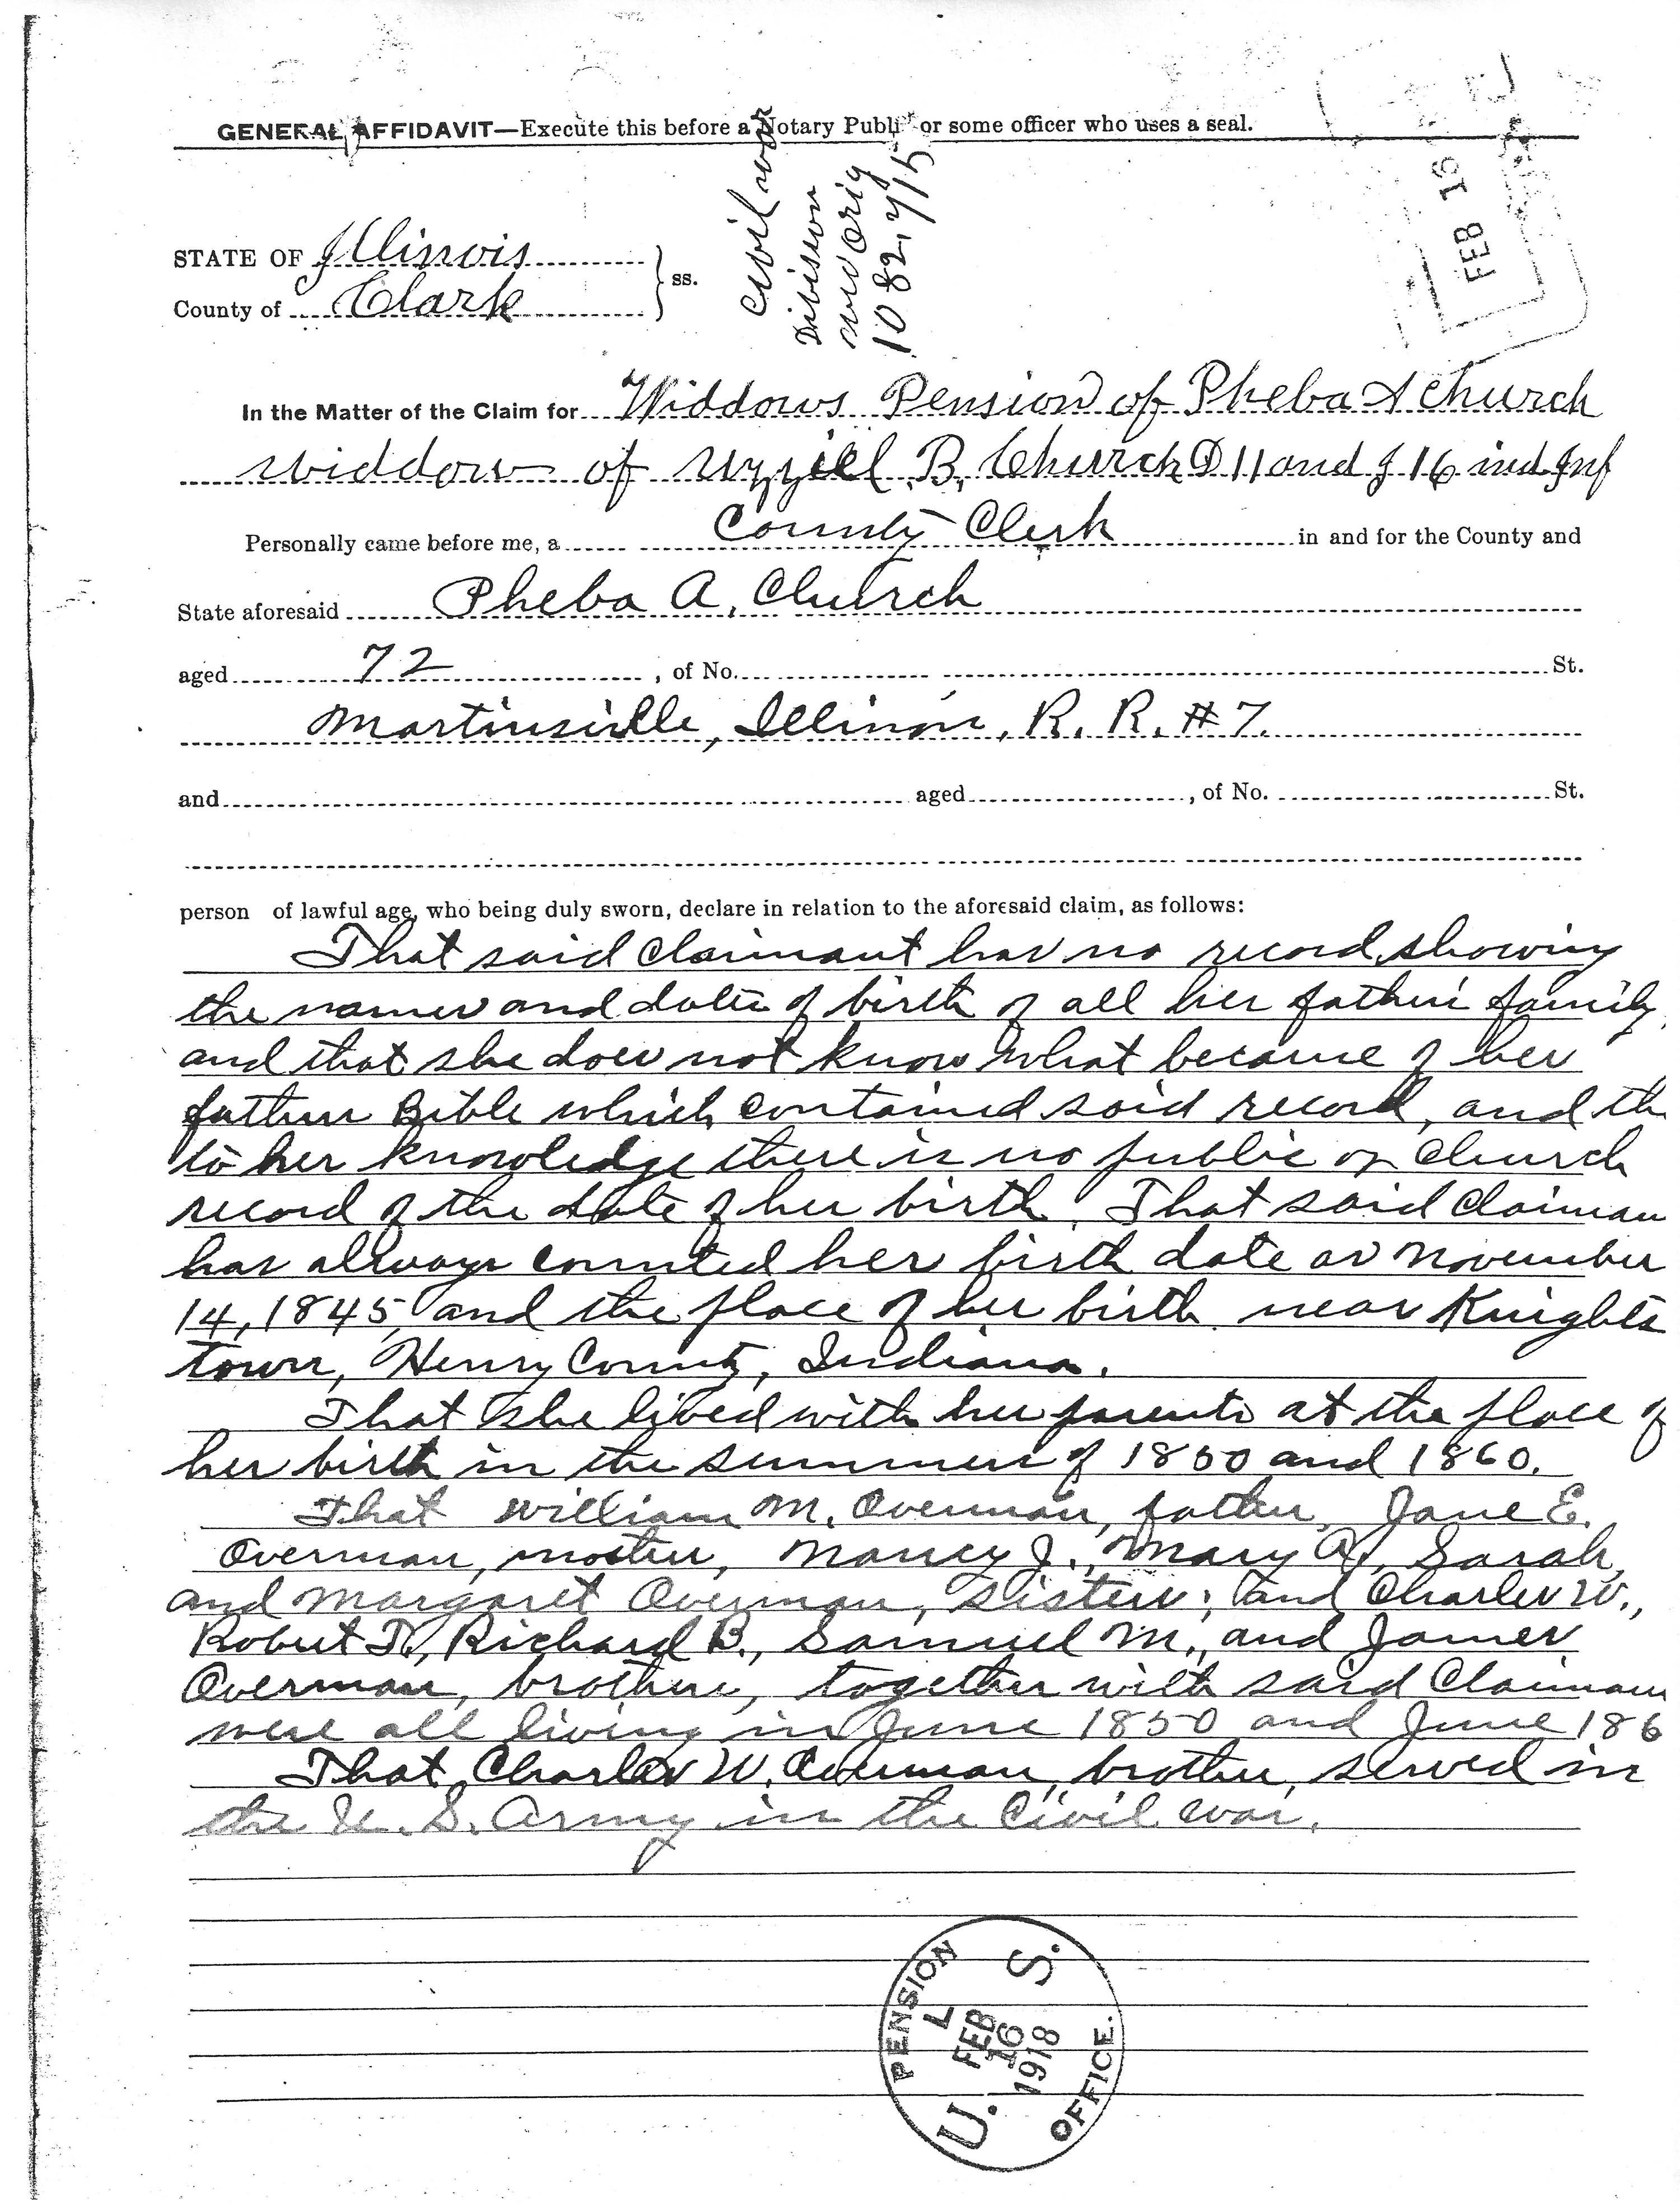 GENERAL AFFIDAVIT—Execute this before a Notary Public or some officer who uses a seal.
Civil war
Division
wid Orig
1082,715
FEB 16
STATE OF Illinois
County of Clark
ss.
In the Matter of the Claim for Widdows Pension of Pheba A Church
widdow of Uzziell B. Church D 11 and I 16 ind Inf
Personally came before me, a County Clerk in and for the County and
State aforesaid Pheba A. Church
aged 72, of No. St.
Martinsville, Illinois, R. R. #7.
and aged, of No. St.
person of lawful age, who being duly sworn, declare in relation to the aforesaid claim, as follows:
That said claimant has no record showing
the names and dates of birth of all her fathers family,
and that she does not know what became of her
fathers Bible which contained said record, and th
to her knowledge there is no public or church
record of the date of her birth. That said Claiman
has allways counted her birth date as November
14, 1845, and the place of her birth near Knights
town, Henry County, Indiana.
That she lived with her parents at the place of
her birth in the summers of 1850 and 1860.
That William M. Overman, father, Jane E.
Overman, mother, Nancy J., Mary A., Sarah,
and Margaret Overman, sisters; and Charles W.,
Robert T., Richard B., Samuel M., and James
Overman, brothers, together with said Claiman
were all living in June 1850 and June 186
That Charles W. Overman, brother, served in
the U. S. Army in the Civil War.
U. S. PENSION OFFICE.
L
FEB
16
1918